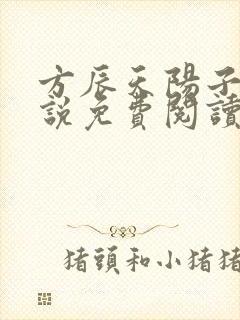 方辰天陽子
說免費閱讀
猪頭和小猪猪